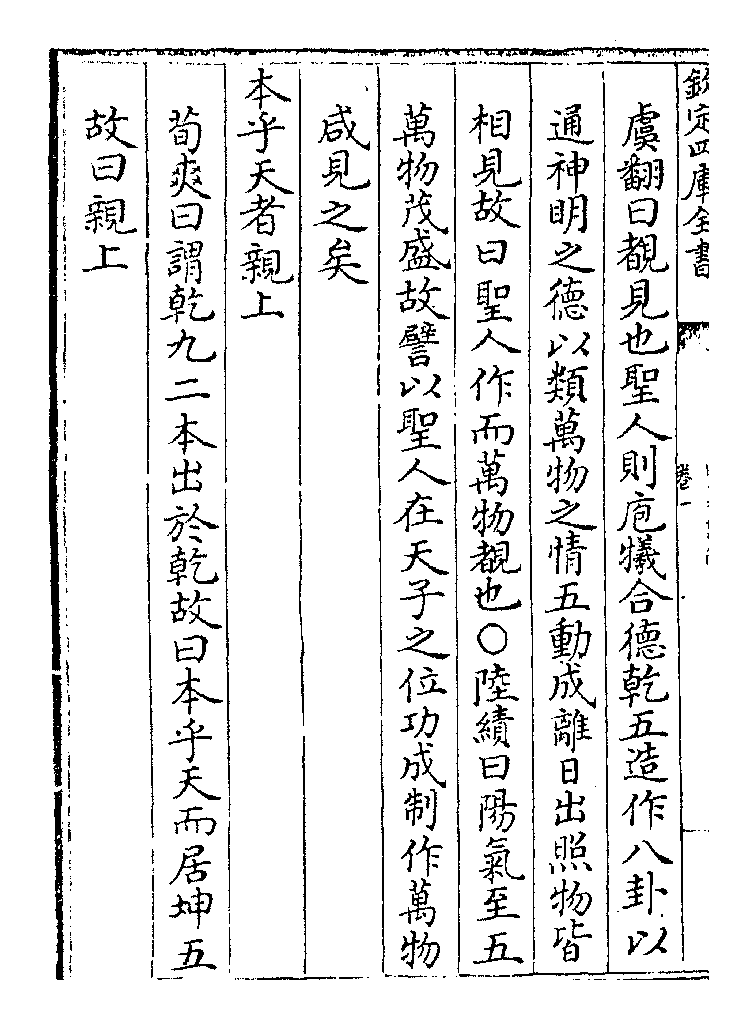 欽定四庫全書
卷一
虞翻曰覩見也聖人則庖犧合德乾五造作八卦以
通神明之德以類萬物之情五動成離日出照物皆
相見故曰聖人作而萬物覩也○陸績曰陽氣至五
萬物茂盛故譬以聖人在天子之位功成制作萬物
咸見之矣
本乎天者親上
荀爽曰謂乾九二本出於乾故曰本乎天而居坤五
故曰親上